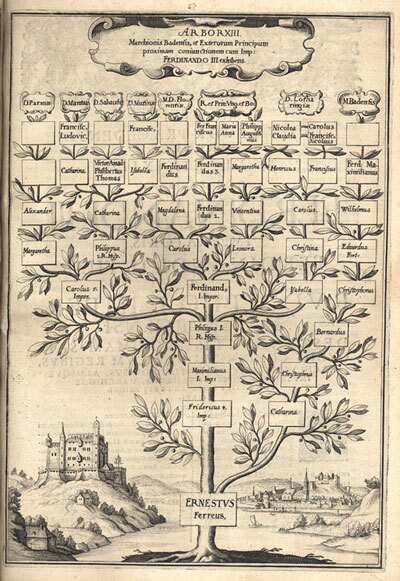 ARBOR XIII.
Marchionis Badensis, et Exterorum Principum
proximam coniunctionem cum Imp:
FERDINANDO III. exhibens
D. Parmae D. Mantuae D. Sabaudiae D. Mutinae M.D. Florentiae R. et Prin: Ung. et Bo. D. Lotharingiae M. Badensis
Francisc.
Ludovic.
Francisc.
Fer Fran
ciscus
Maria
Anna
Philipp
Augusti
nus
Nicolea
Claudia
Carolus
Francisc
Nicolaus
Catharina
Victor Amad:
Philibertus
Thomas
Isabella
Ferdinan
dus
Ferdinan
dus 3.
Margaretha
Henricus
Franciscus
Ferd: Ma-
ximilianus
Alexander
Catharina
Magdalena
Ferdinan
dus 2.
Vincentius
Carolus
Wilhelmus
Margaretha
Philippus
2. R. Hisp.
Carolus
Leonora
Christina
Eduardus
Fort:
Carolus 5.
Imper.
Ferdinand9
I. Imper.
Isabella
Christophorus
Philippus I.
R. Hisp.
Bernardus
Maximilianus
I. Imp:
Christophorus
I.
Fridericus 4.
Imp:
Catharina
ERNESTVS
Ferreus.